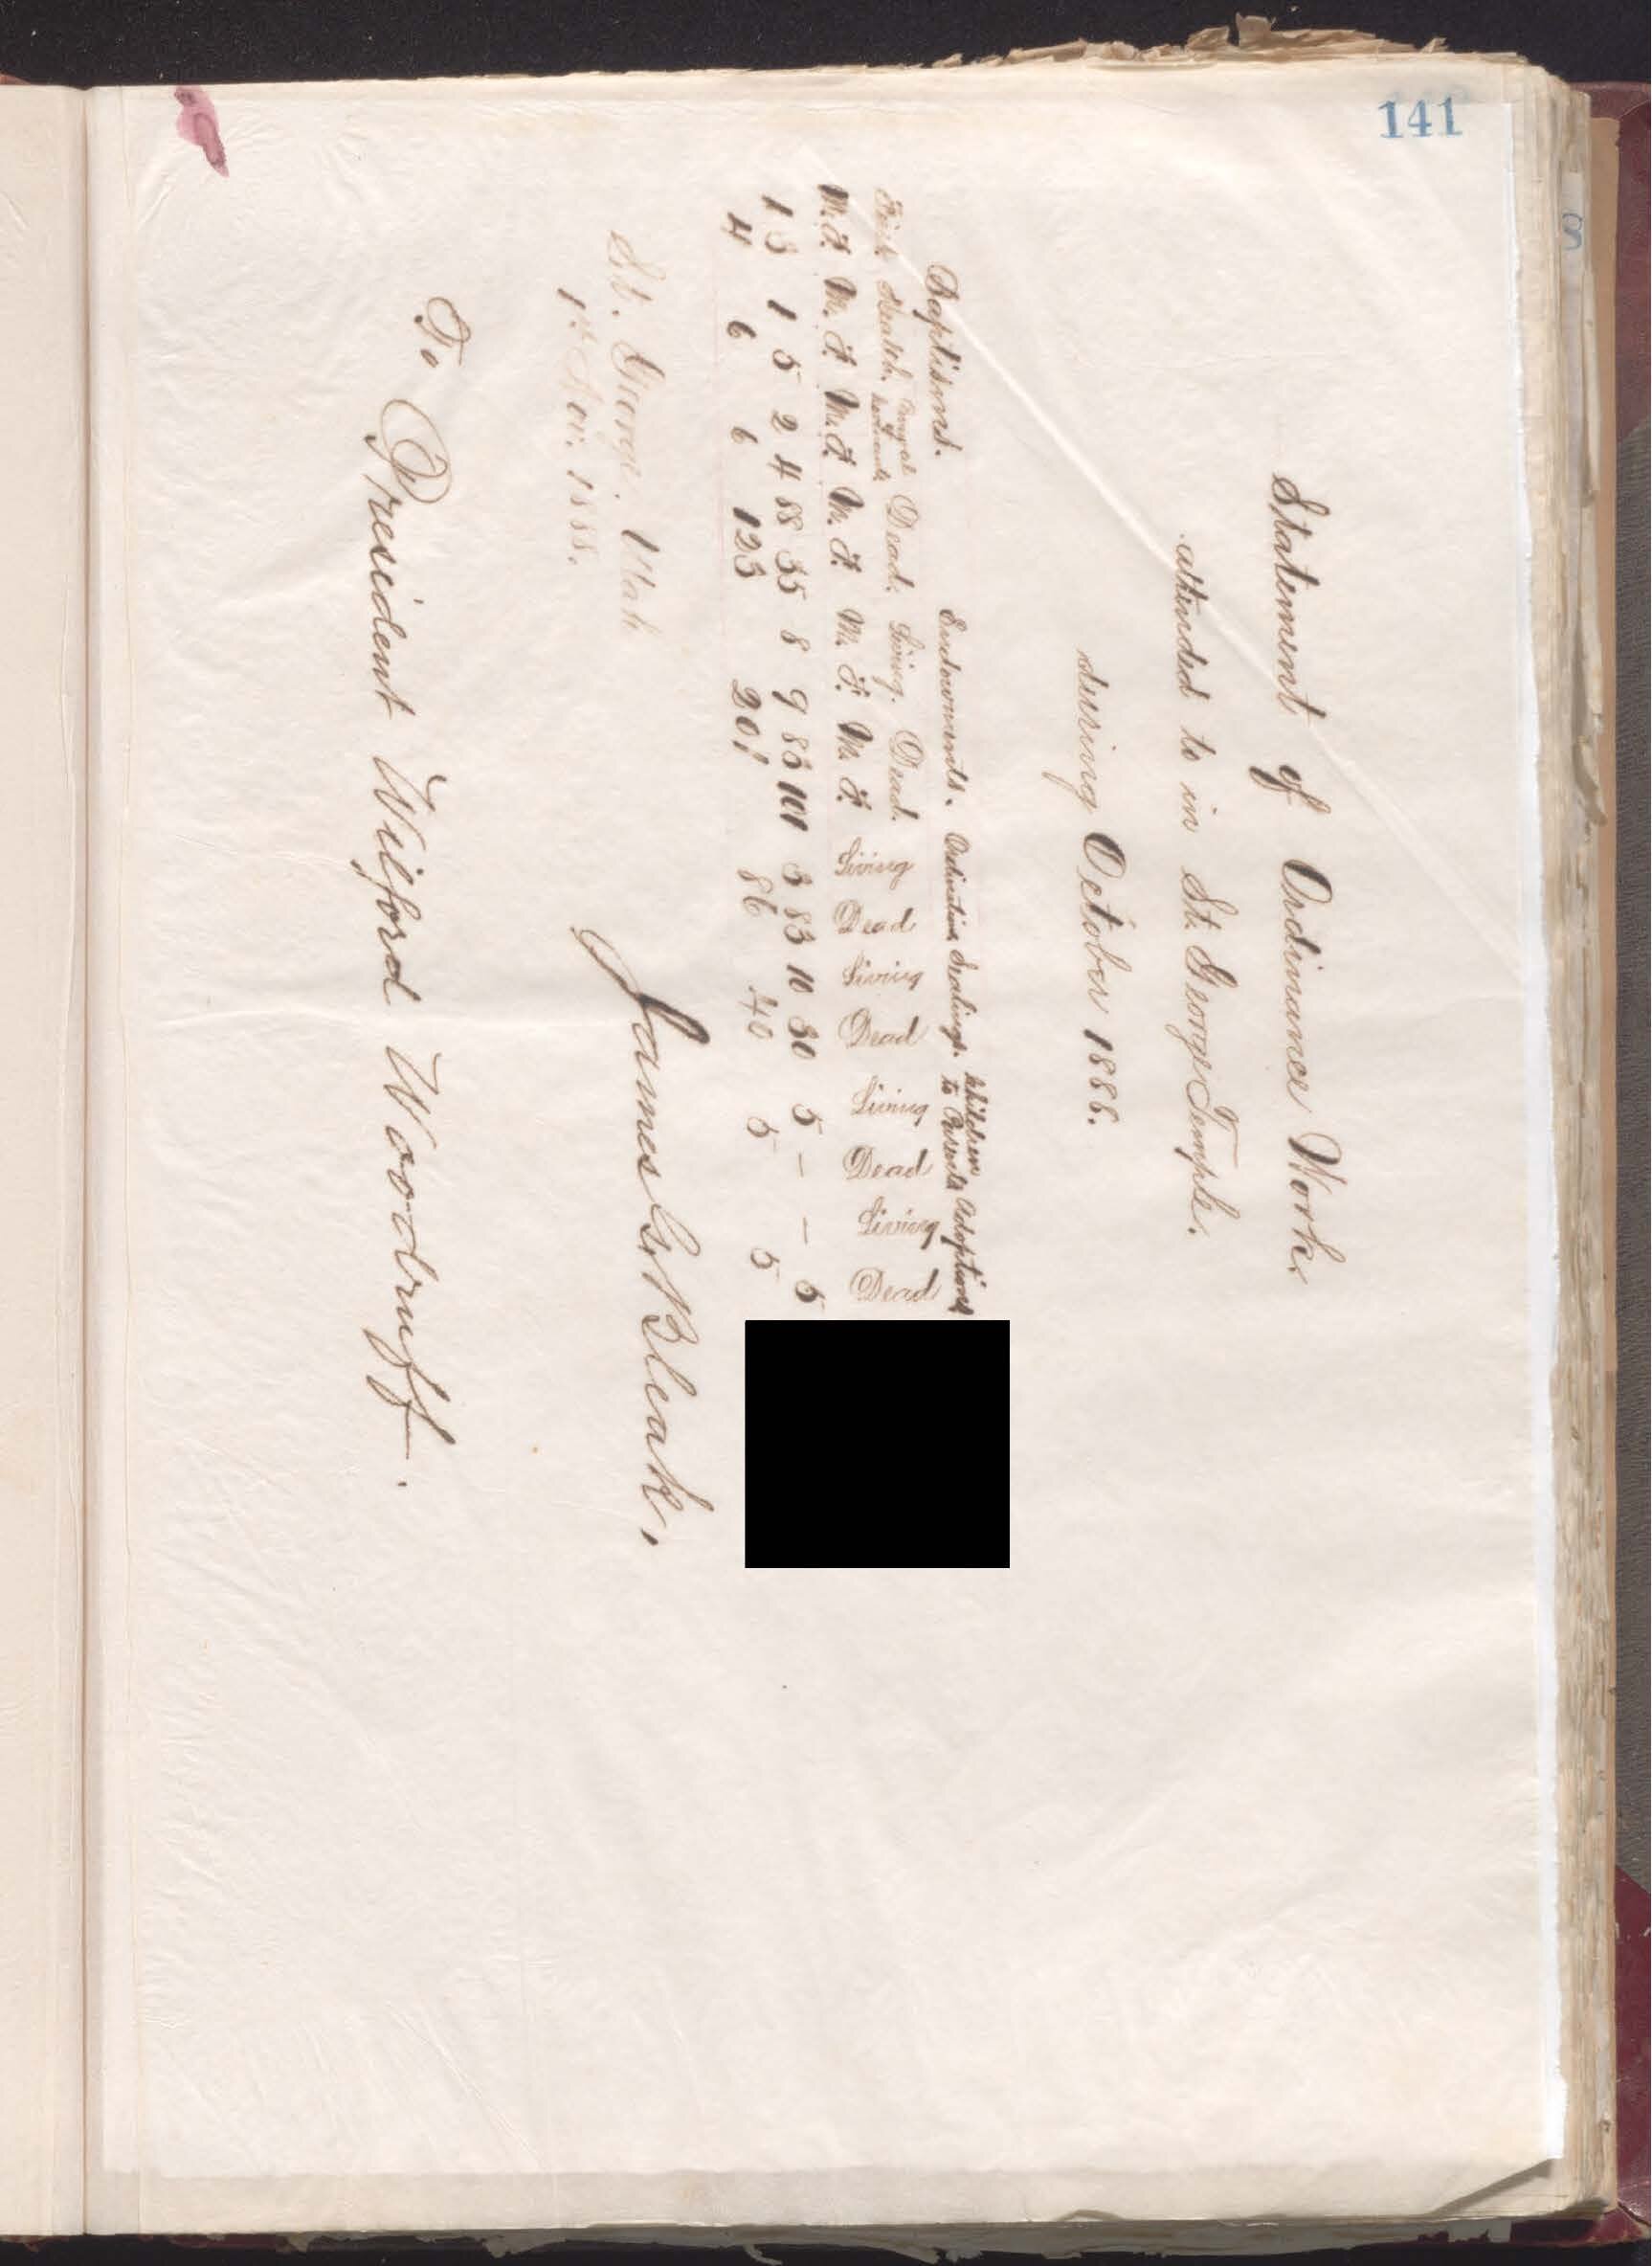 141
Statement of Ordinance Work
attended to in St. George Temple.
during October 1888.
Baptisms. Endowments. Ordinations Sealings. Children to Parents Adoptions
First Health. Dead. Living. Dead. Living Dead Living Dead Living Dead Living Dead
M. F. M. F. M. F. M. F. M. F. M. F.
1 3 1 5 2 4 88 35 8 9 83 101 3 83 10 30 5 – – 5
4 6 6 123 201 86 40 5 5
St. George. Utah
1st Nov. 1888.
James G. Bleak,
To President Wilford Woodruff.